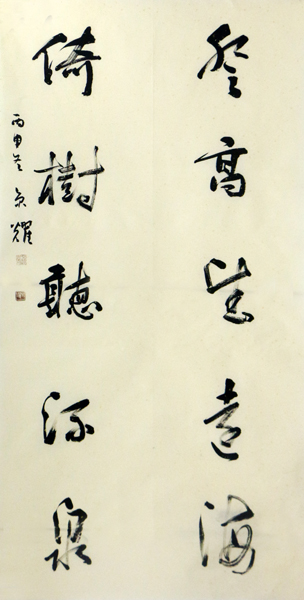 登高望遠海
倚樹聽流泉
丙申冬 京耀